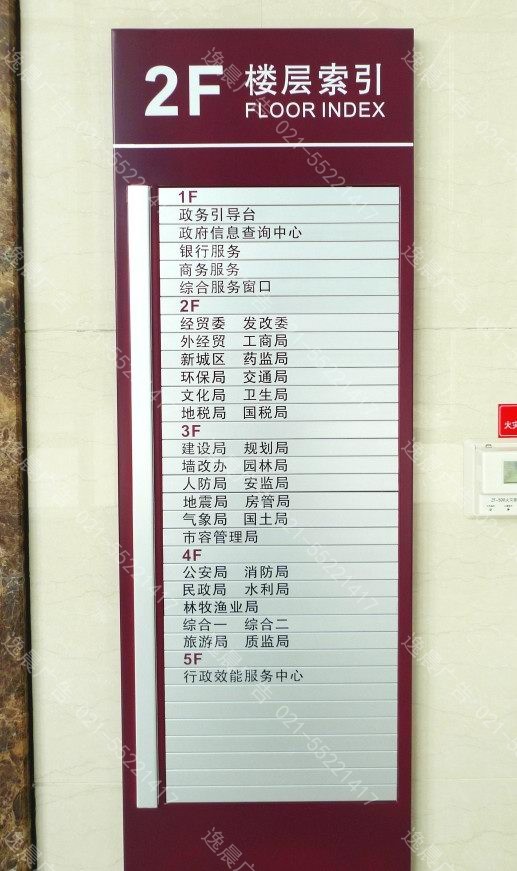 2F 楼层索引
FLOOR INDEX
1F
政务引导台
政府信息查询中心
银行服务
商务服务
综合服务窗口
2F
经贸委 发改委
外经贸 工商局
新城区 药监局
环保局 交通局
文化局 卫生局
地税局 国税局
3F
建设局 规划局
墙改办 园林局
人防局 安监局
地震局 房管局
气象局 国土局
市容管理局
4F
公安局 消防局
民政局 水利局
林牧渔业局
综合一 综合二
旅游局 质监局
5F
行政效能服务中心
逸晨广告 021-55221417